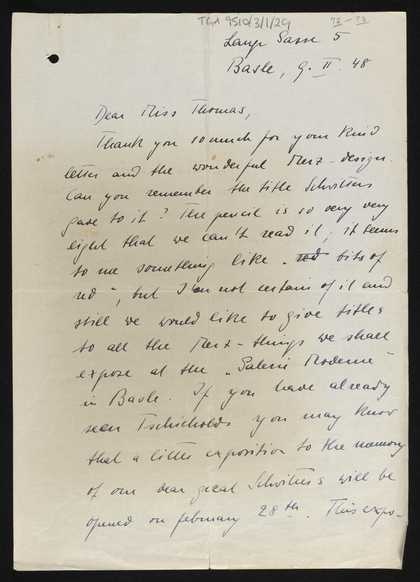 TGA 9510/3/1/29
Lange Gasse 5
Basle, 9. II. 48
Dear Miss Thomas,
Thank you so much for your kind
letter and the wonderful Merz-design.
Can you remember the title Schwitters
gave to it? The pencil is so very very
light that we can't read it; it seems
to me something like „red bits of
red", but I'm not certain of it and
still we would like to give titles
to all the Merz-things we shall
expose at the „Galerie Moderne"
in Basle. If you have already
seen Tschicholds you may know
that a little exposition to the memory
of our dear great Schwitters will be
opened on february 28th. This expo-